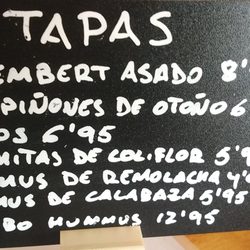 TAPAS
EMBERT ASADO 8'
PIÑONES DE OTOÑO 6
OS 6'95
MITAS DE COLIFLOR 5'9
MUS DE REMOLACHA 4'
MUS DE CALABAZA 5'95
BO HUMMUS 12'95